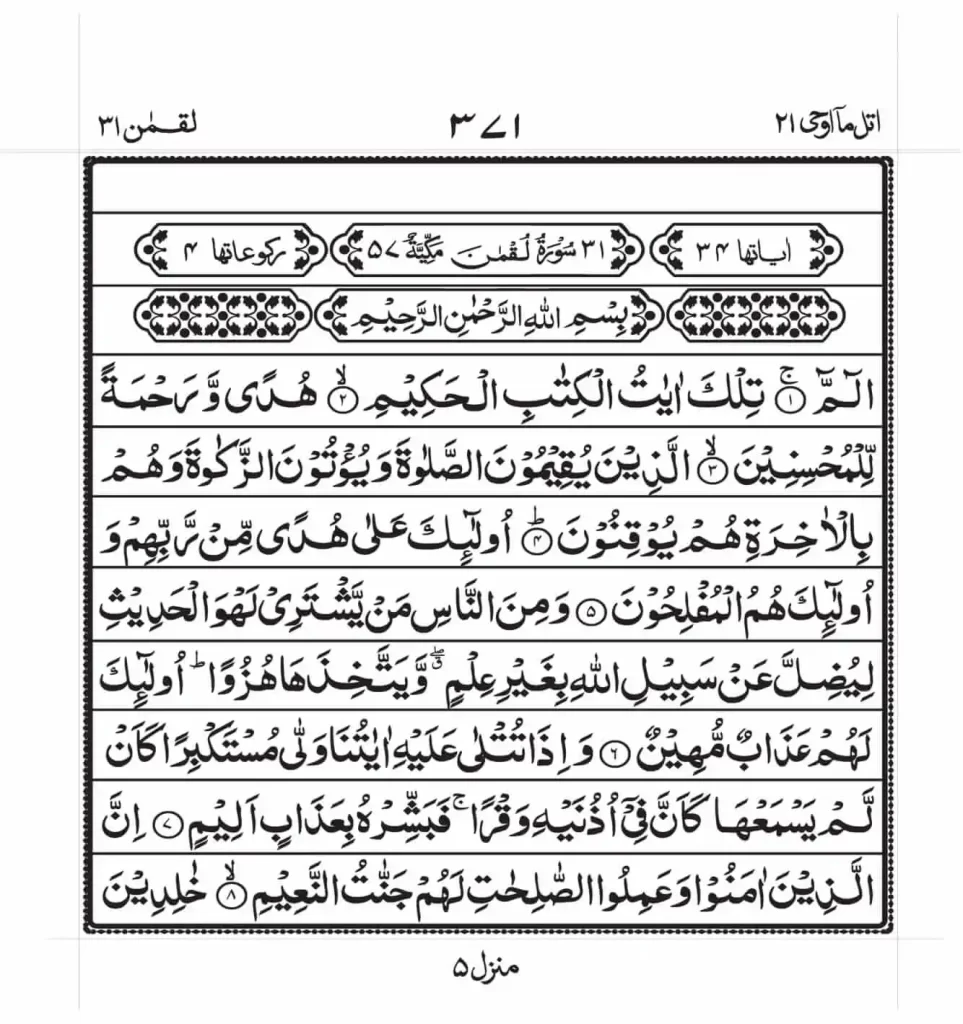 اتل مآاوحی ۲۱ ۳۷۱ لقمٰن ۳۱
اٰیاتها ۳۴ ۳۱ سُوْرَةُ لُقْمٰنَ مَكِّيَّةٌ ۵۷ رکوعاتها ۴
بِسْمِ اللّٰهِ الرَّحْمٰنِ الرَّحِيْمِ
الٓمّٓ ۚ‏﴿۱﴾ تِلْكَ اٰيٰتُ الْكِتٰبِ الْحَكِيْمِ ۙ‏﴿۲﴾ هُدًى وَّ رَحْمَةً
لِّلْمُحْسِنِيْنَ ۙ‏﴿۳﴾ الَّذِيْنَ يُقِيْمُوْنَ الصَّلٰوةَ وَ يُؤْتُوْنَ الزَّكٰوةَ وَ هُمْ
بِالْاٰخِرَةِ هُمْ يُوْقِنُوْنَ ؕ‏﴿۴﴾ اُولٰٓئِكَ عَلٰى هُدًى مِّنْ رَّبِّهِمْ وَ
اُولٰٓئِكَ هُمُ الْمُفْلِحُوْنَ ﴿۵﴾ وَ مِنَ النَّاسِ مَنْ يَّشْتَرِىْ لَهْوَ الْحَدِيْثِ
لِيُضِلَّ عَنْ سَبِيْلِ اللّٰهِ بِغَيْرِ عِلْمٍ ۖۗ وَّ يَتَّخِذَهَا هُزُوًا ؕ اُولٰٓئِكَ
لَهُمْ عَذَابٌ مُّهِيْنٌ ﴿۶﴾ وَ اِذَا تُتْلٰى عَلَيْهِ اٰيٰتُنَا وَلّٰى مُسْتَكْبِرًا كَاَنْ
لَّمْ يَسْمَعْهَا كَاَنَّ فِىْۤ اُذُنَيْهِ وَقْرًا ۚ فَبَشِّرْهُ بِعَذَابٍ اَلِيْمٍ ﴿۷﴾ اِنَّ
الَّذِيْنَ اٰمَنُوْا وَ عَمِلُوا الصّٰلِحٰتِ لَهُمْ جَنّٰتُ النَّعِيْمِ ۙ‏﴿۸﴾ خٰلِدِيْنَ
منزل ۵